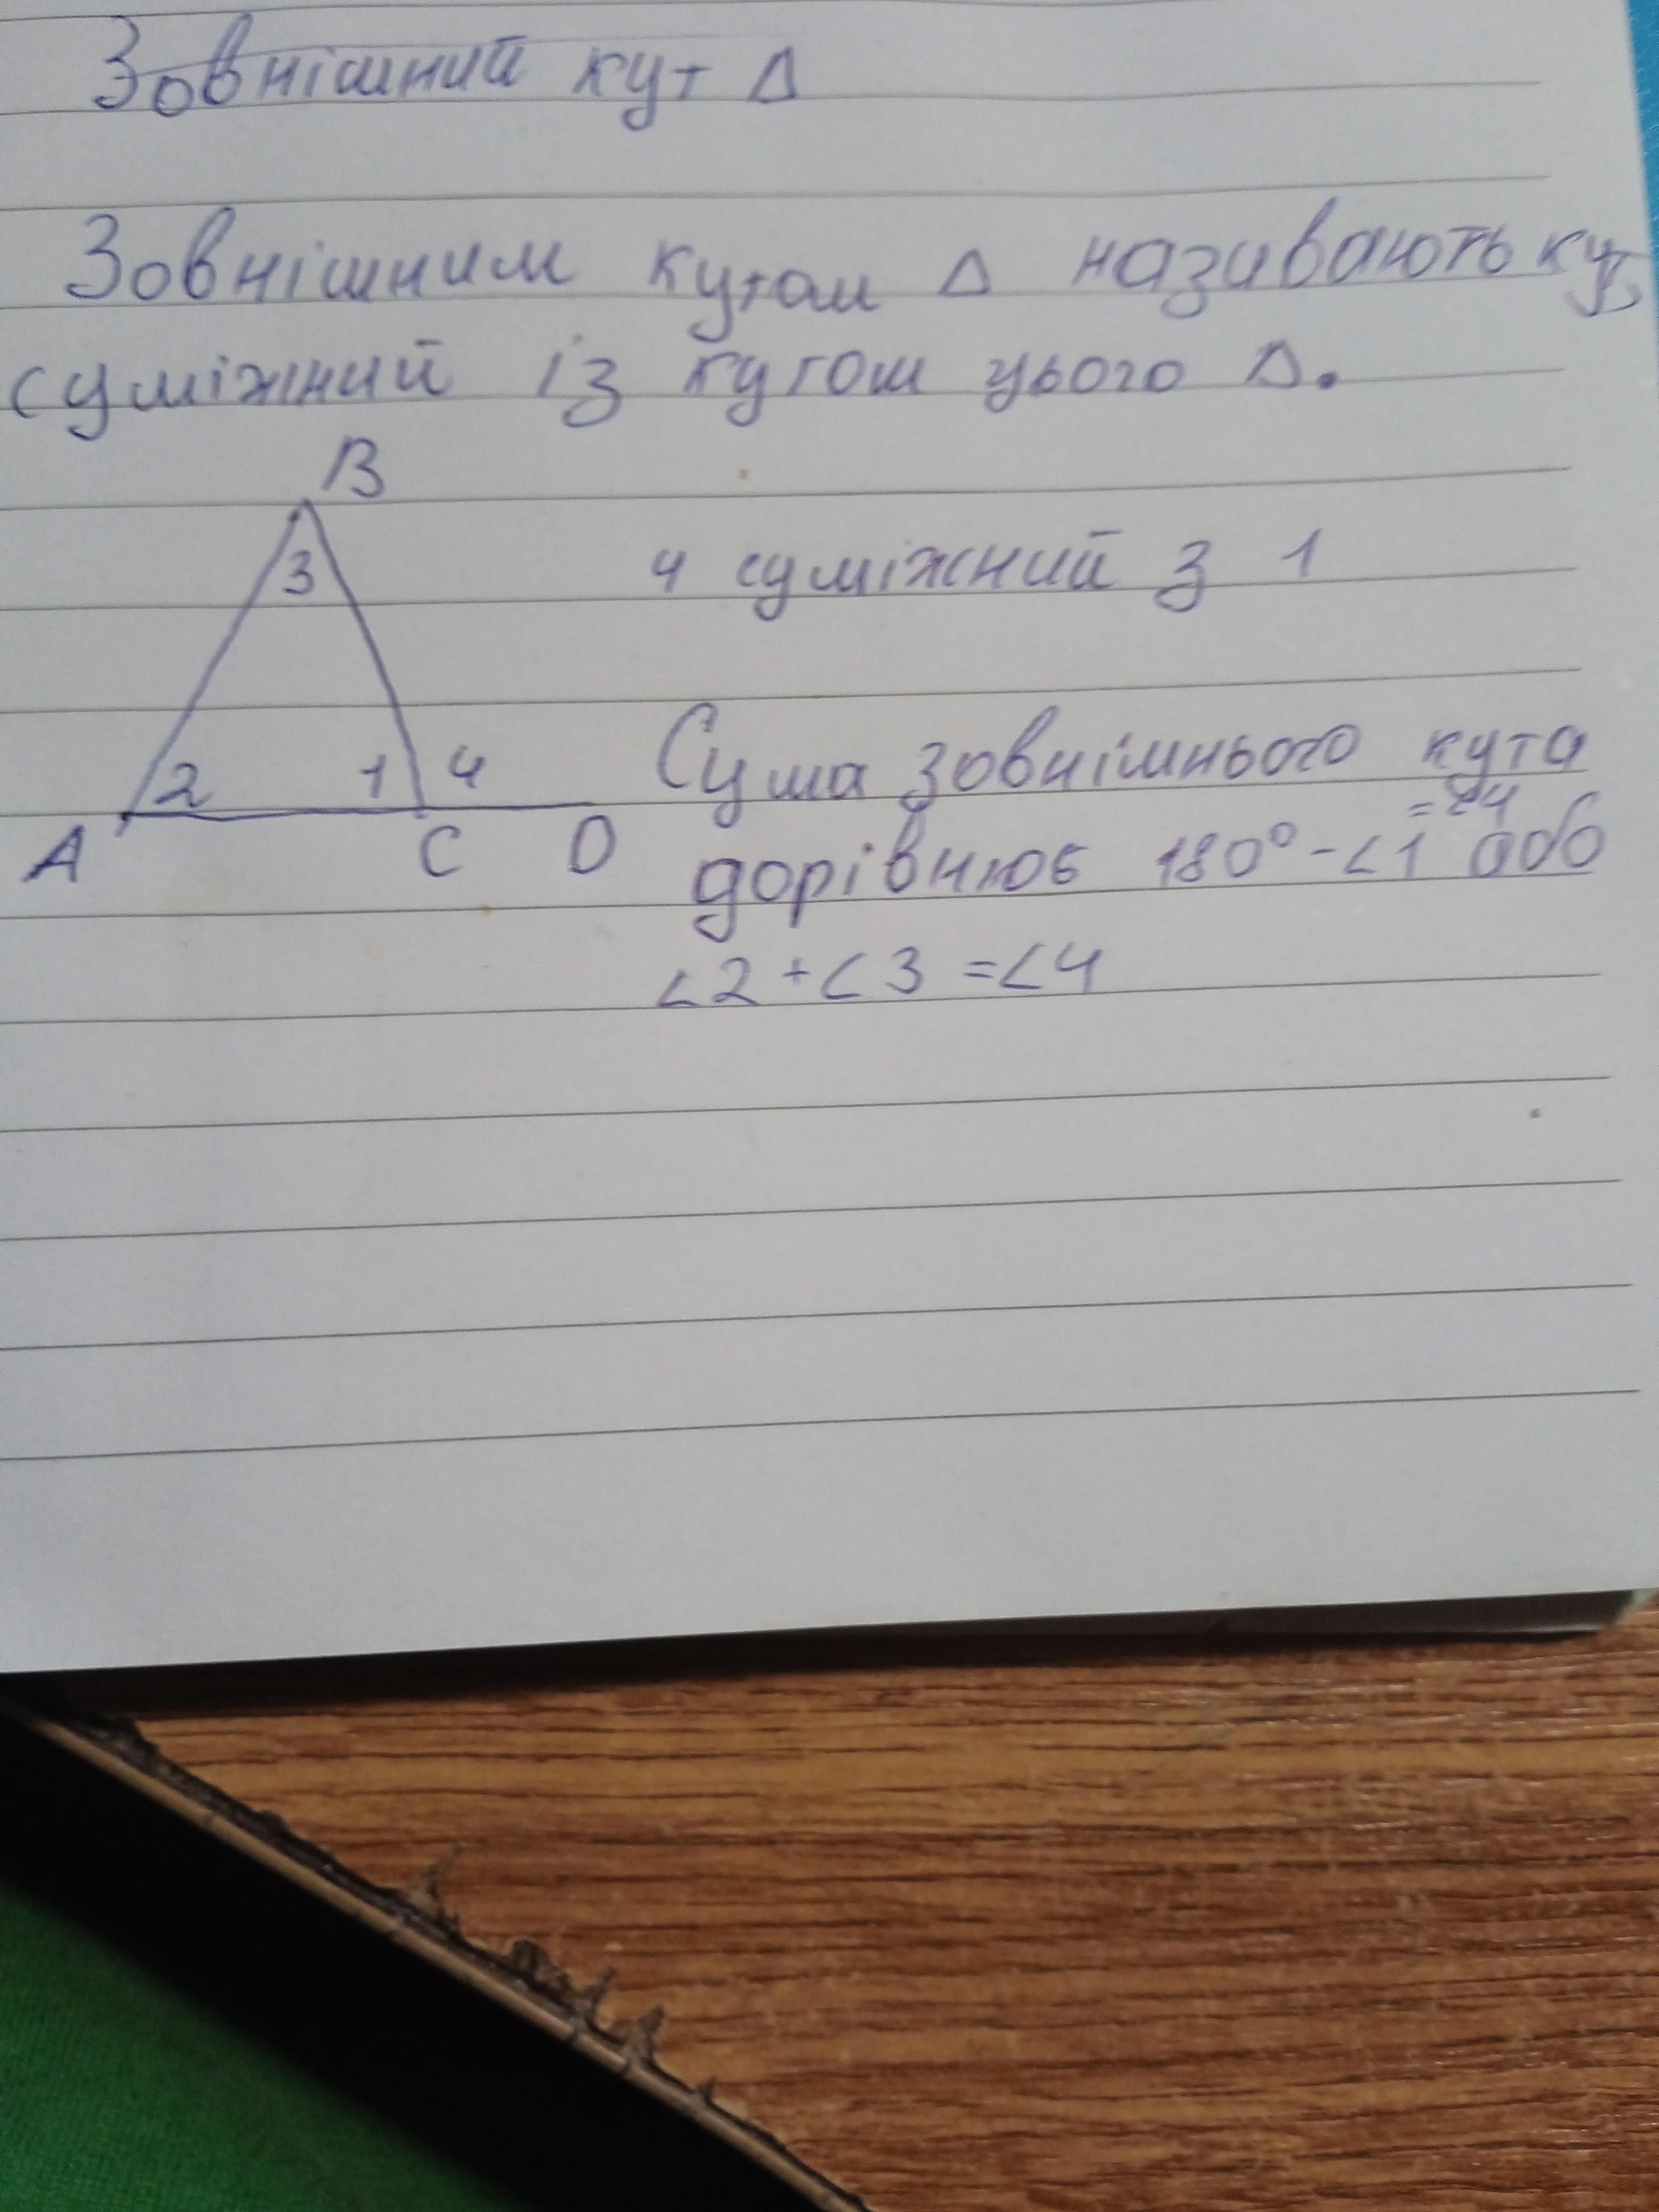 Зовнішний кут Δ
Зовнішним кутом Δ називають кут,
суміжний із кутом цього Δ.
B
3
4 суміжний з 1
2 1 4
A C D
Сума зовнішнього кута
дорівнює 180° - ∠1 = ∠4 або
∠2 + ∠3 = ∠4